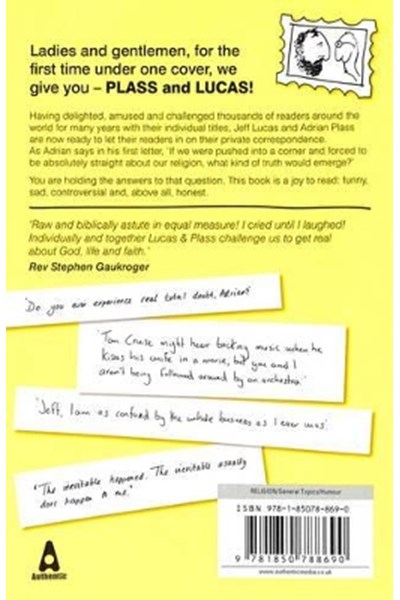 Ladies and gentlemen, for the
first time under one cover, we
give you – PLASS and LUCAS!
Having delighted, amused and challenged thousands of readers around the
world for many years with their individual titles, Jeff Lucas and Adrian Plass
are now ready to let their readers in on their private correspondence.
As Adrian says in his first letter, 'If we were pushed into a corner and forced to
be absolutely straight about our religion, what kind of truth would emerge?'
You are holding the answers to that question. This book is a joy to read: funny,
sad, controversial and, above all, honest.
'Raw and biblically astute in equal measure! I cried until I laughed!
Individually and together Lucas & Plass challenge us to get real
about God, life and faith.'
Rev Stephen Gaukroger
'Do you ever experience real total doubt, Adrian?'
'Tom Cruise might hear backing music when he
kisses his wife in a movie, but you and I
aren't being followed around by an orchestra.'
'Jeff, I am as confused by the whole business as I ever was'.
'The inevitable happened. The inevitable usually
does happen to me.'
RELIGION/General Topics/Humour
ISBN 978-1-85078-869-0
9 781850 788690
www.authenticmedia.co.uk
A
Authentic